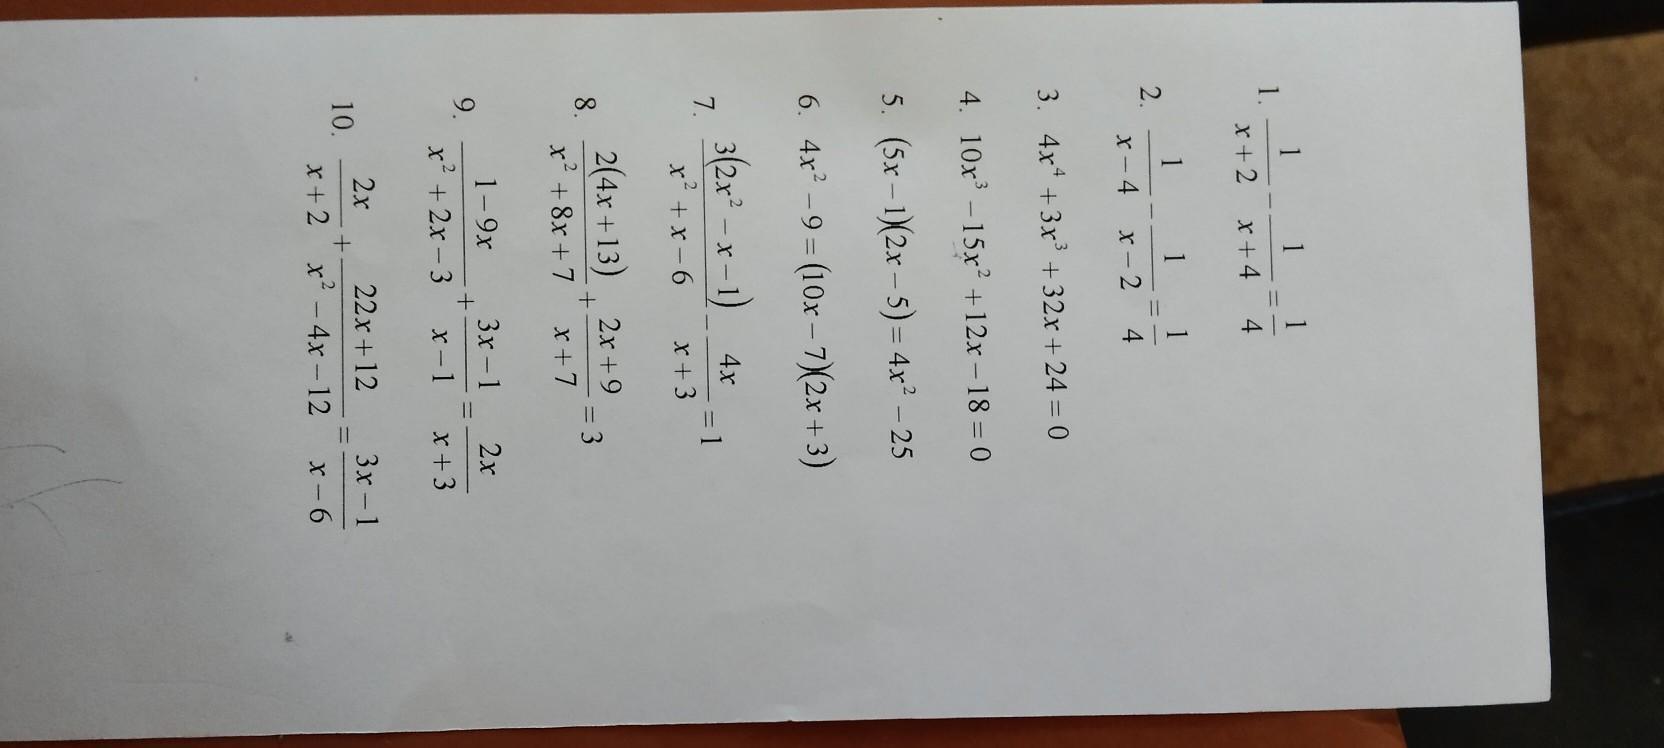 1. \frac{1}{x+2} - \frac{1}{x+4} = \frac{1}{4}
2. \frac{1}{x-4} - \frac{1}{x-2} = \frac{1}{4}
3. 4x⁴ + 3x³ + 32x + 24 = 0
4. 10x³ - 15x² + 12x - 18 = 0
5. (5x - 1)(2x - 5) = 4x² - 25
6. 4x² - 9 = (10x - 7)(2x + 3)
7. \frac{3(2x² - x - 1)}{x² + x - 6} - \frac{4x}{x+3} = 1
8. \frac{2(4x + 13)}{x² + 8x + 7} + \frac{2x + 9}{x + 7} = 3
9. \frac{1 - 9x}{x² + 2x - 3} + \frac{3x - 1}{x - 1} = \frac{2x}{x + 3}
10. \frac{2x}{x + 2} + \frac{22x + 12}{x² - 4x - 12} = \frac{3x - 1}{x - 6}